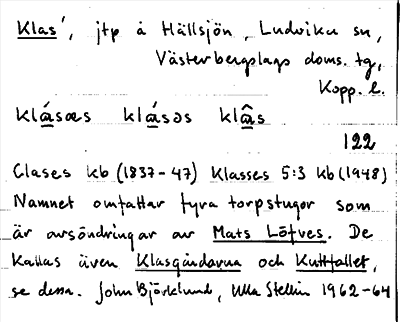 Klas', jtp å Hällsjön, Ludvika sn,
Västerbergslags doms. tg,
Kopp. l.
klásæs klásəs klâs
122
Clases kb (1837-47) Klasses 5:3 kb (1948)
Namnet omfattar fyra torpstugor som
är avsöndringar av Mats Löfves. De
kallas även Klasgårdarna och Kuttfallet,
se dessa. John Björklund, Ulla Stellin 1962-64